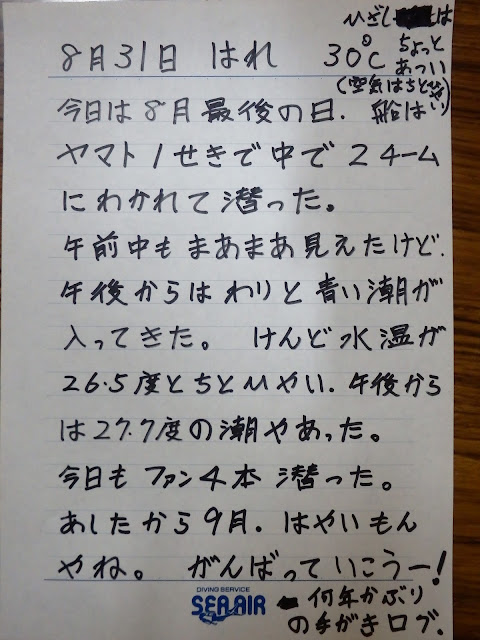 ひざしは
ちょっと
あつい
8月31日 はれ 30℃
(空気はちとひやい)
今日は8月最後の日. 船は
ヤマト1せきで中で2チーム
にわかれて潜った。
午前中もまあまあ見えたけど.
午後からはわりと青い潮が
入ってきた。 けんど水温が
26.5度とちとひやい. 午後から
は27.7度の潮やあった。
今日もファン4本潜った。
あしたから9月. はやいもん
やね。 がんばっていこうー!
DIVING SERVICE
SEA AIR
何年かぶり
の手がきログ.